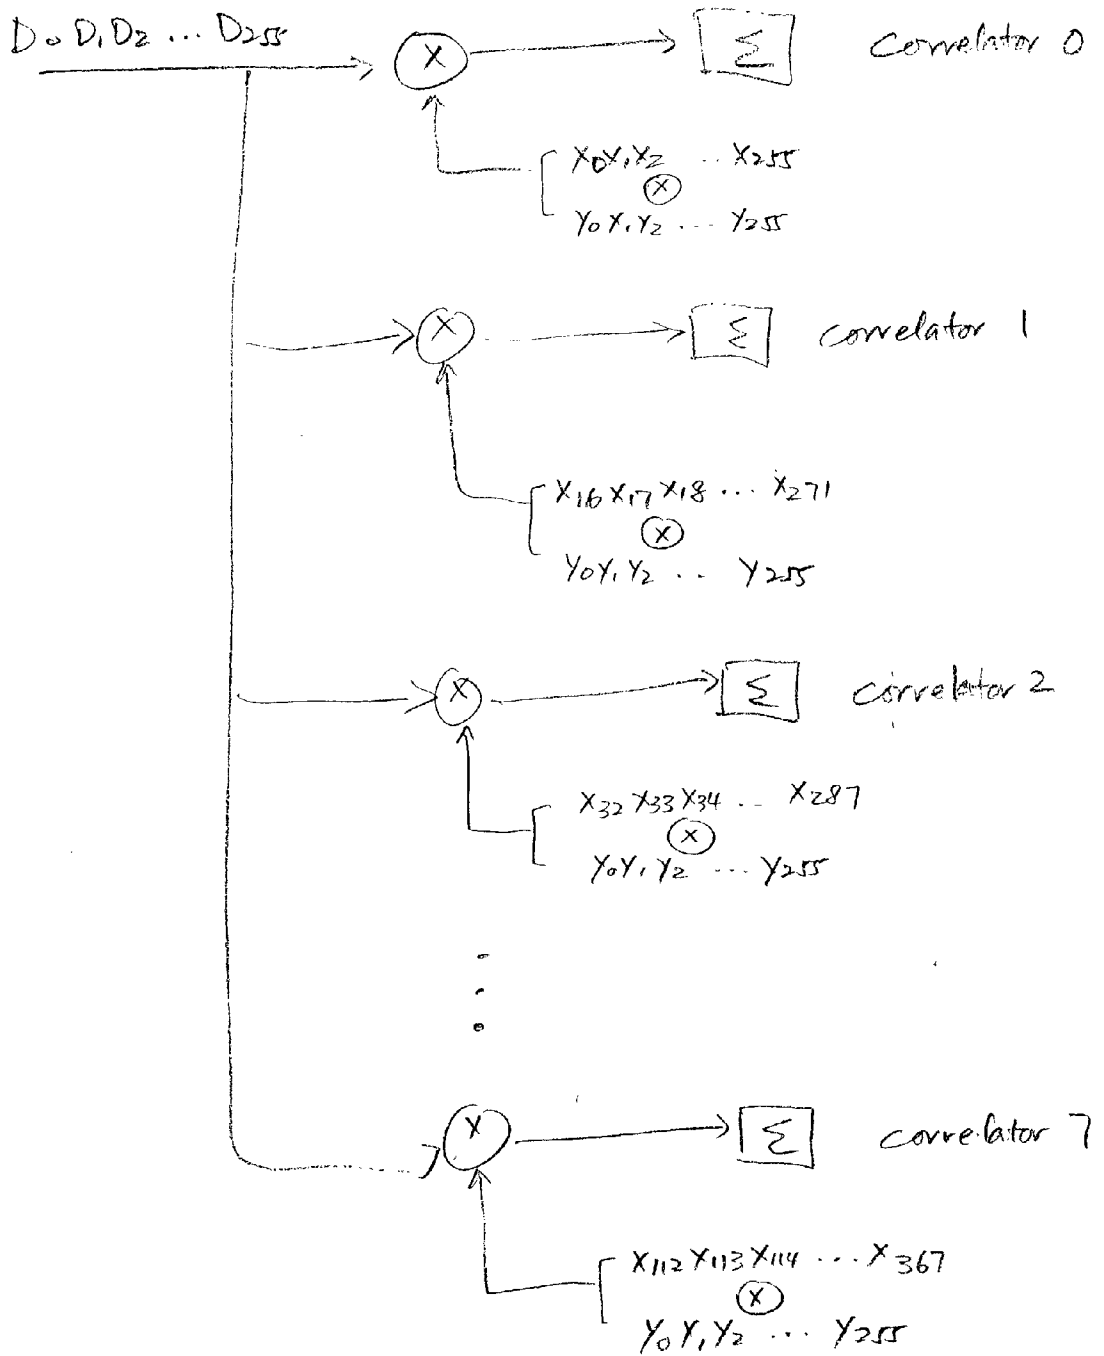 D₀D₁D₂ ... D₂₅₅
X Σ correlator 0
X₀X₁X₂ .. X₂₅₅
X
Y₀Y₁Y₂ ... Y₂₅₅
X Σ correlator 1
X₁₆X₁₇X₁₈ ... X₂₇₁
X
Y₀Y₁Y₂ .. Y₂₅₅
X Σ correlator 2
X₃₂X₃₃X₃₄ .. X₂₈₇
X
Y₀Y₁Y₂ ... Y₂₅₅
X Σ correlator 7
X₁₁₂X₁₁₃X₁₁₄ ... X₃₆₇
X
Y₀Y₁Y₂ ... Y₂₅₅